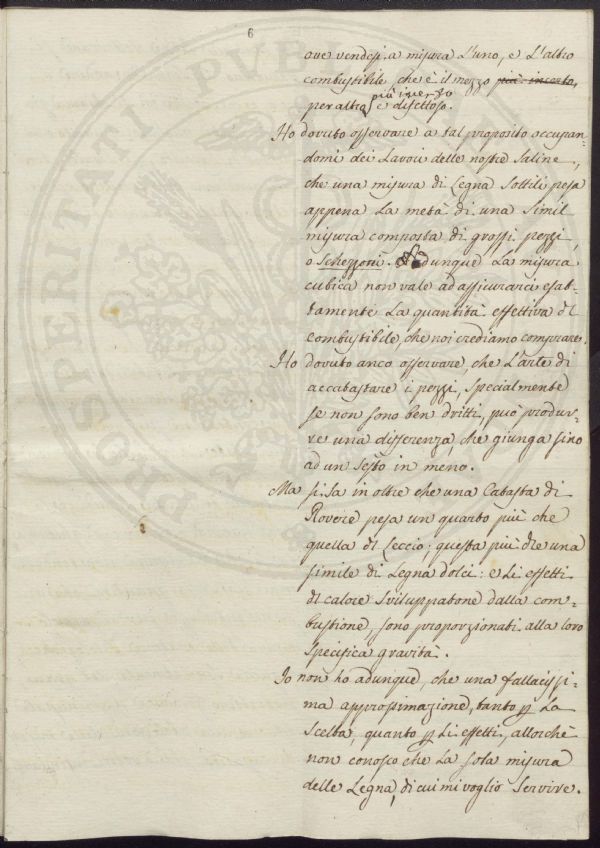 6
ove vendesi a misura l'uno, e l'altro
combustibile, che è il mezzo più incerto,
più incerto
per altro, e difettoso.
Ho dovuto osservare a tal proposito occupan-
domi dei Lavori delle nostre Saline,
che una misura di Legna Sottili pesa
appena la metà di una Simil
misura composta di grossi pezzi,
o Schezzoni. Adunque La misura
cubica non vale ad assicurarci esat-
tamente La quantità effettiva di
combustibile, che noi crediamo comprare.
Ho dovuto anco osservare, che L'arte di
accatastare i pezzi, specialmente
se non sono ben dritti, può produr-
re una differenza, che giunga sino
ad un Sesto in meno.
Ma si sa in oltre che una Catasta di
Rovere pesa un quarto più che
quella di Leccio; questa più che una
simile di Legna dolci: e Li effetti
di calore sviluppatone dalla com-
bustione, sono proporzionati alla loro
Specifica gravità.
Io non ho adunque, che una fallacissi-
ma approssimazione, tanto p La
Scelta, quanto p Li effetti, allorchè
non conosco che La sola misura
delle Legna, di cui mi voglio Servire.
PROSPERITATI PVB